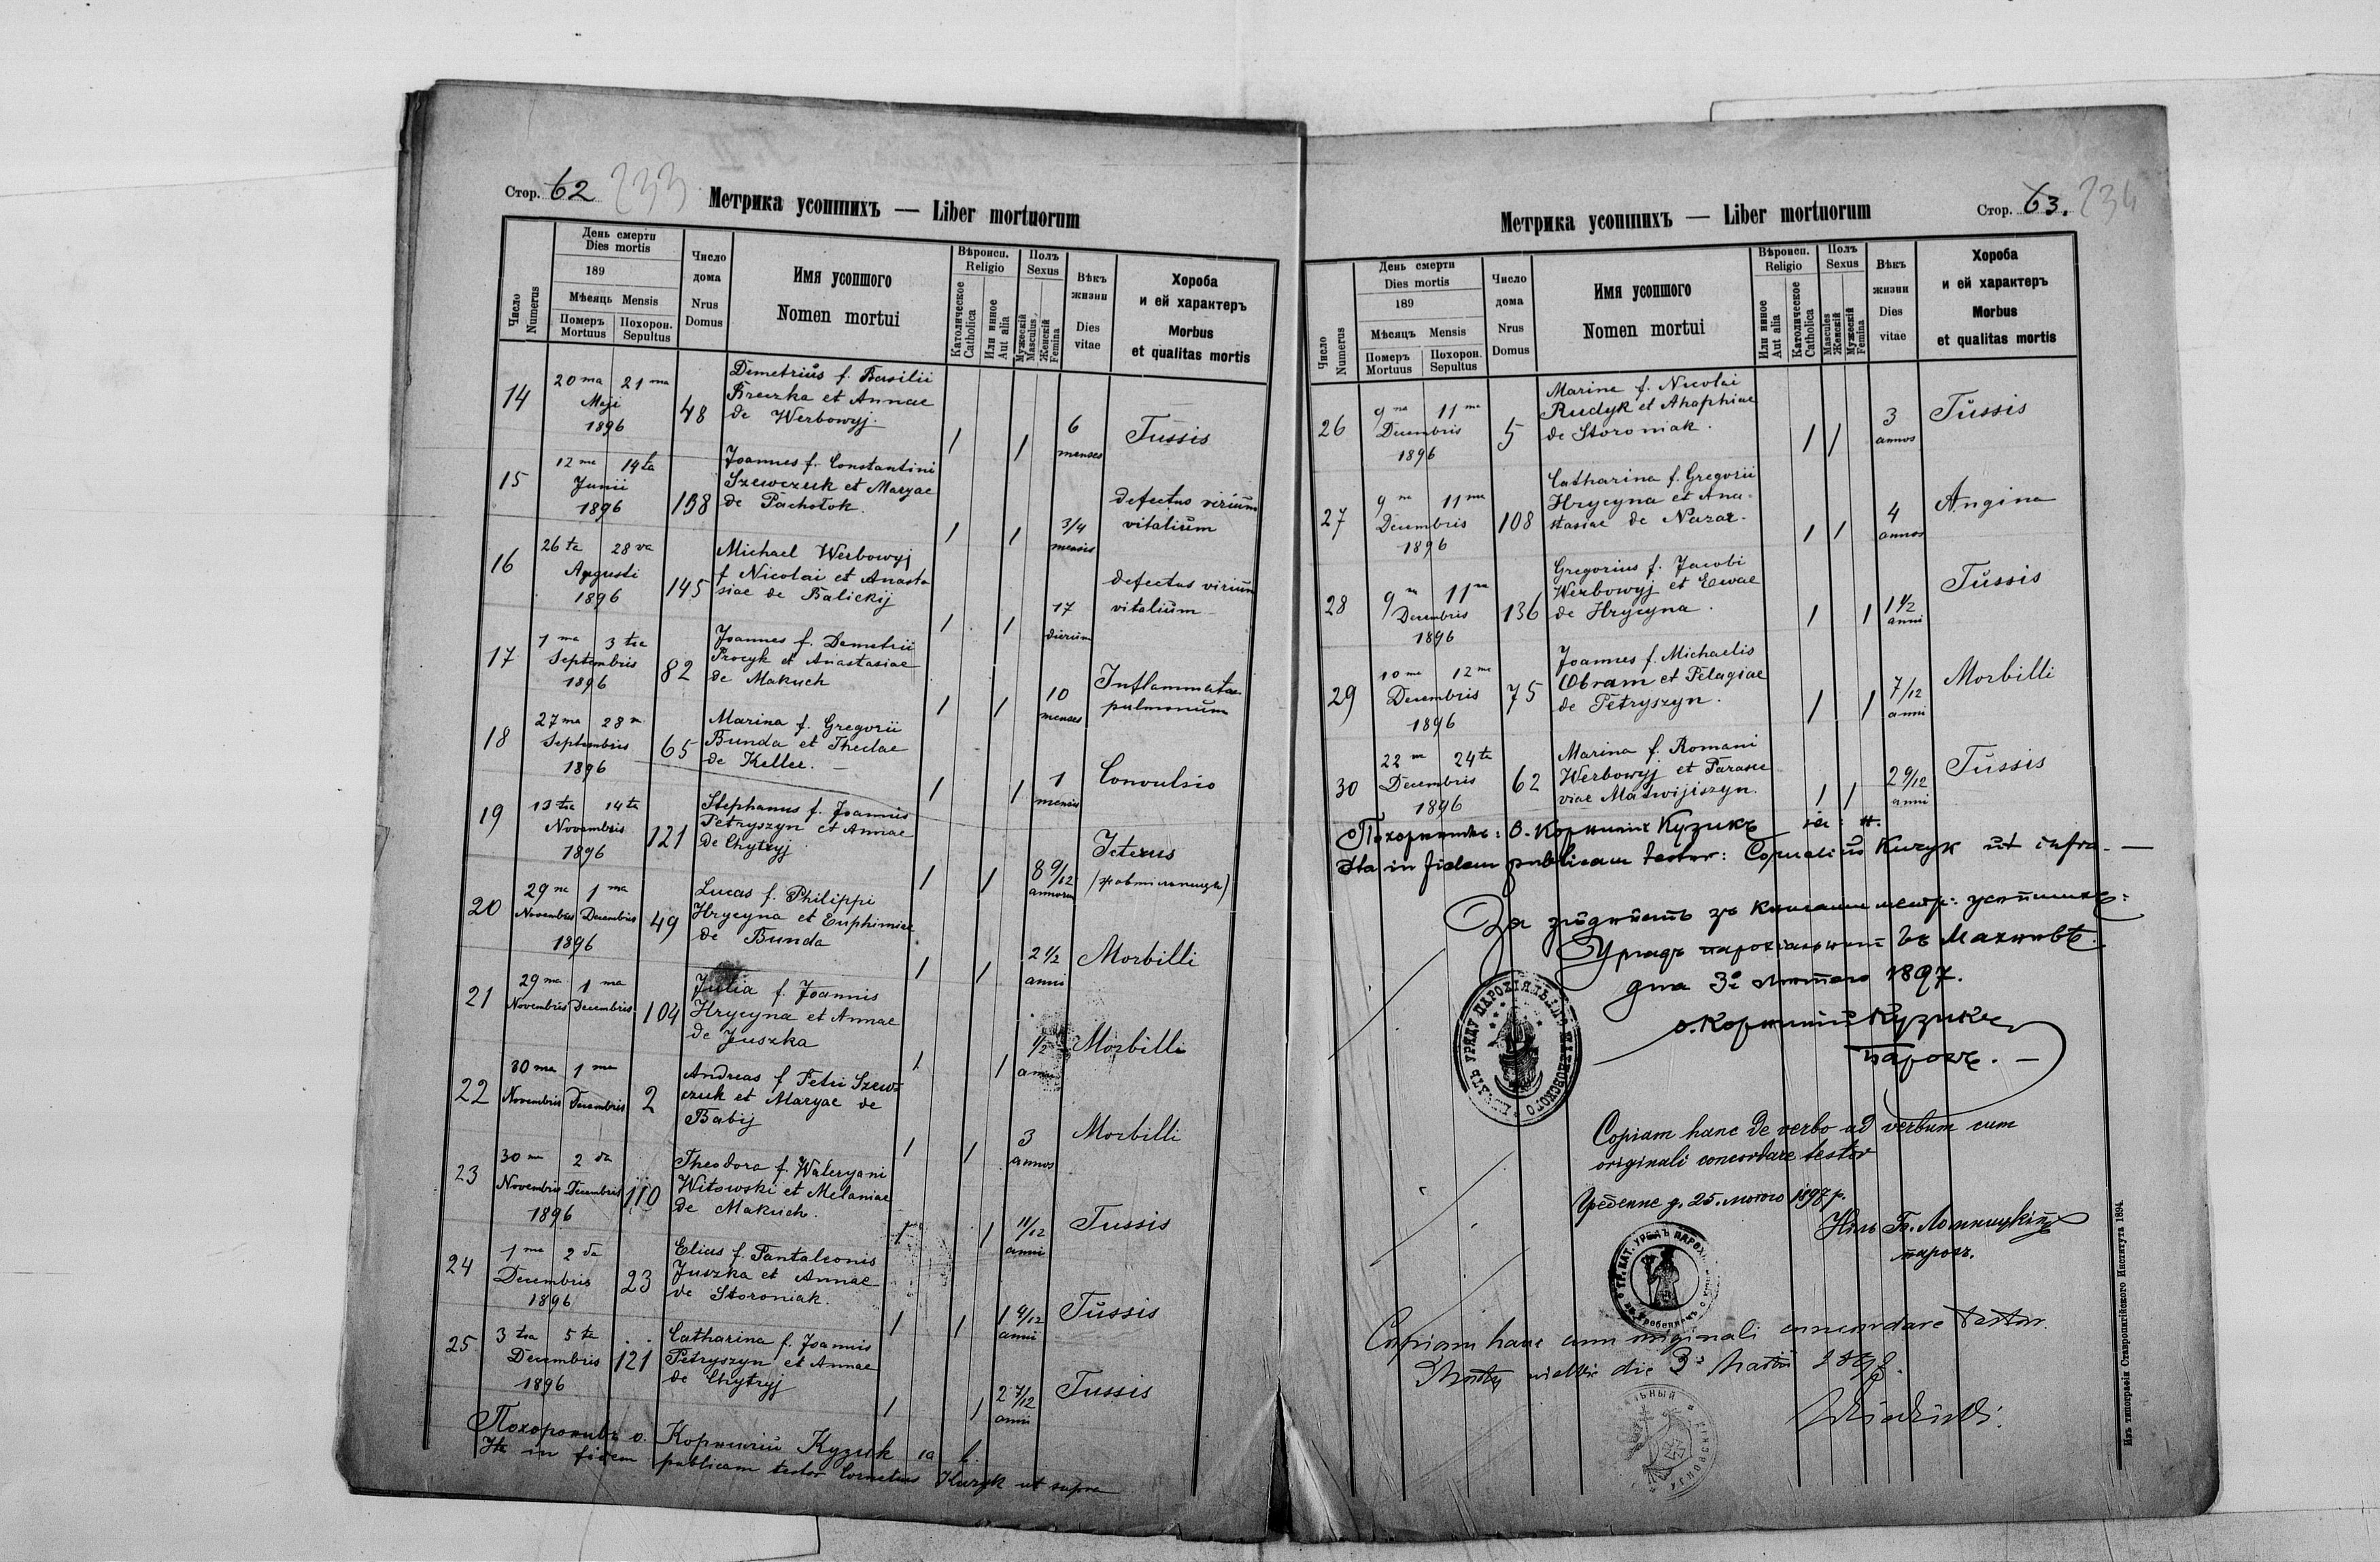 Стор. 62 233
Метрика усопшихъ — Liber mortuorum
Число Numerus
День смерти
Dies mortis
189
Мѣсяць Mensis
Померъ Mortuus
Похорон. Sepultus
Число дома
Nrus Domus
Имя усопшого
Nomen mortui
Вѣроисп.
Religio
Католическое Catholica
Или иное Aut alia
Полъ
Sexus
Мужескій Masculus
Женскій Femina
Вѣкъ жизни
Dies vitae
Хороба
и ей характеръ
Morbus
et qualitas mortis
14 20ma 21ma Maji 1896 48
Demetrius f. Basilii
Breczka et Annae
de Werbowyj.
1 1 6 menses Tussis
15 12ma 14ta Junii 1896 138
Joannes f. Constantini
Szewczuk et Maryae
de Pachołok.
1 1 3/4 mensis defectus virium
vitalium
16 26ta 28va Augusti 1896 145
Michael Werbowyj
f Nicolai et Anasta
siae de Balickij
1 1 17 dierum defectus virium
vitalium
17 1ma 3tia Septembris 1896 82
Joannes f. Demetrii
Procyk et Anastasiae
de Makuch
1 1 10 menses Inflammatio
pulmonum
18 27ma 28 Septembris 1896 65
Marina f. Gregorii
Bunda et Theclae
de Keller. —
1 1 1 mensis Convulsio
19 13tia 14ta Novembris 1896 121
Stephanus f. Joannis
Petryszyn et Annae
de Chytryj
1 1 8 9/12 annorum Icterus
20 29na 1ma Novembris Decembris 1896 49
Lucas f. Philippi
Hrycyna et Euphimiae
de Bunda
1 1 2 1/2 anni Morbilli
21 29na 1ma Novembris Decembris 104
Julia f. Joannis
Hrycyna et Annae
de Juszka
1 1 1/2 Morbilli
22 30ma 1ma Novembris Decembris 2
Andreas f Petri Szew
czuk et Maryae de
Babij
1 1 3 annos Morbilli
23 30ma 2da Novembris Decembris 1896 110
Theodora f. Waleryani
Witowski et Melaniae
de Makuch.
1 1 11/12 anni Tussis
24 1ma 2da Decembris 1896 23
Elias f. Pantaleonis
Juszka et Annae
de Storoniak.
1 1 1 4/12 anni Tussis
25 3tia 5ta Decembris 1896 121
Catharina f. Joannis
Petryszyn et Annae
de Chytryj
1 1 2 7/12 anni Tussis
Похоронивъ о. Корнилій Кузик
Ita in fidem publicam testor Cornelius Kuzyk ut supra
Метрика усопшихъ — Liber mortuorum
Стор. 63. 234
Число Numerus
День смерти
Dies mortis
189
Мѣсяць Mensis
Померъ Mortuus
Похорон. Sepultus
Число дома
Nrus Domus
Имя усопшого
Nomen mortui
Вѣроисп.
Religio
Или иное Aut alia
Католическое Catholica
Полъ
Sexus
Masculus Женскій
Мужескій Femina
Вѣкъ жизни
Dies vitae
Хороба
и ей характеръ
Morbus
et qualitas mortis
26 9na 11ma Decembris 1896 5
Marina f. Nicolai
Rudyk et Ahaphiae
de Storoniak.
1 1 3 annos Tussis
27 9na 11ma Decembris 1896 108
Catharina f. Gregorii
Hrycyna et Ana-
stasiae de Nazar.
1 1 4 annos Angina
28 9na 11ma Decembris 1896 136
Gregorius f. Jacobi
Werbowyj et Ewae
de Hrycyna.
1 1 1 1/2 anni Tussis
29 10ma 12ma Decembris 1896 75
Joannes f. Michaelis
Obram et Pelagiae
de Petryszyn.
1 1 7/12 anni Morbilli
30 22da 24ta Decembris 1896 62
Marina f. Romani
Werbowyj et Paraske
viae Matwijiszyn.
1 1 2 9/12 anni Tussis
Похоронивъ: о. Корнилій Кузикъ
Ita in fidem publicam testor: Cornelius Kuzyk ut infra. —
За згôдність зъ книгами метр:
Урядъ парохіяльный въ Махновѣ.
дня 3го лютого 1897.
о. Корнилій Кузикъ
парохъ. —
Copiam hanc de verbo ad verbum cum
originali concordare testor
д. 25. лютого 1897 р.
парохъ.
Copiam hanc cum originali concordare testor.
die 3 Martii 1897.
Изъ типографіи Ставропигійского Института 1894.